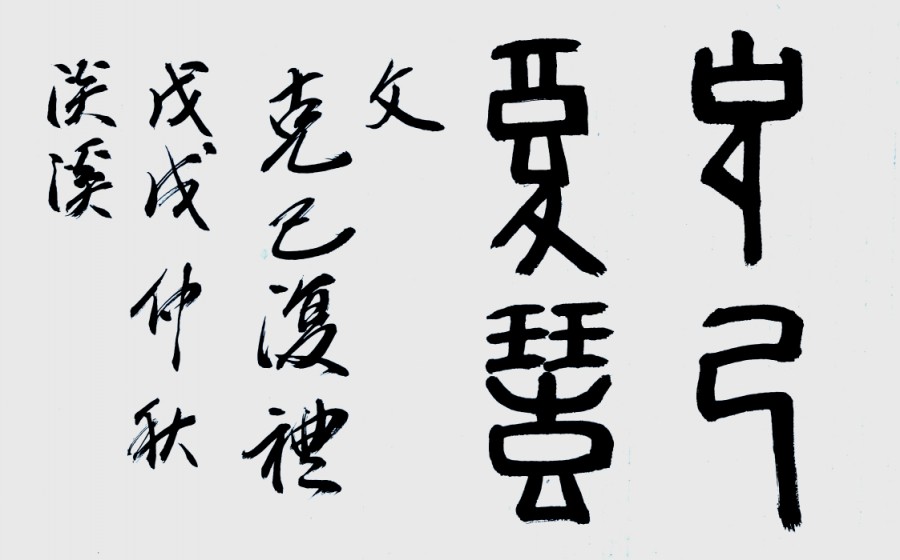 克己
復禮
文
克己復禮
戊戌仲秋
淡溪